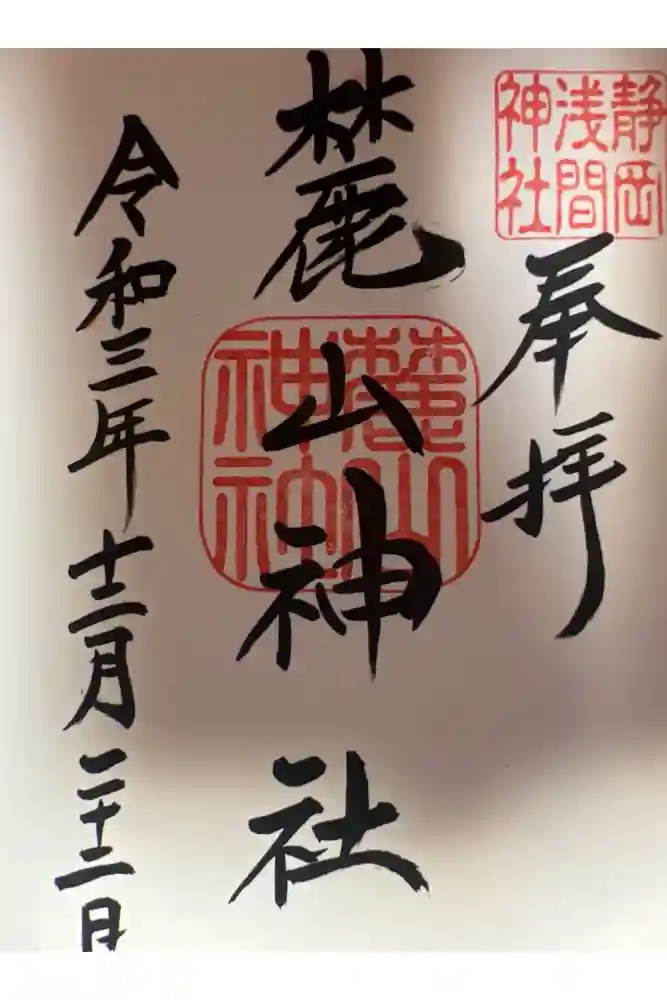 静岡
浅間
神社
奉拝
麓山神社
麓山
神社
令和三年十二月二十二日